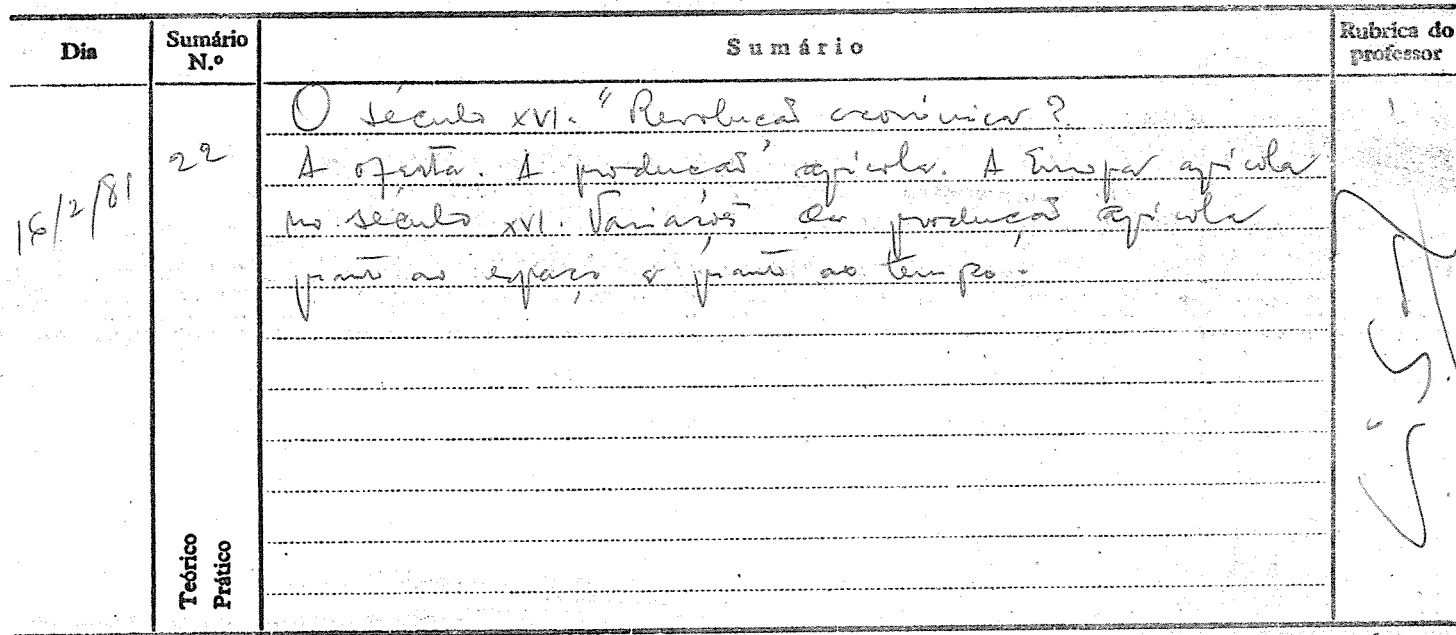 Dia
Sumário N.º
Sumário
Rubrica do professor
16/2/81
22
O século XVI. "Revolução económica?
A oferta. A produção agrícola. A Europa agrícola
no século XVI. Variações da produção agrícola
quanto ao espaço e quanto ao tempo.
Teórico
Prático